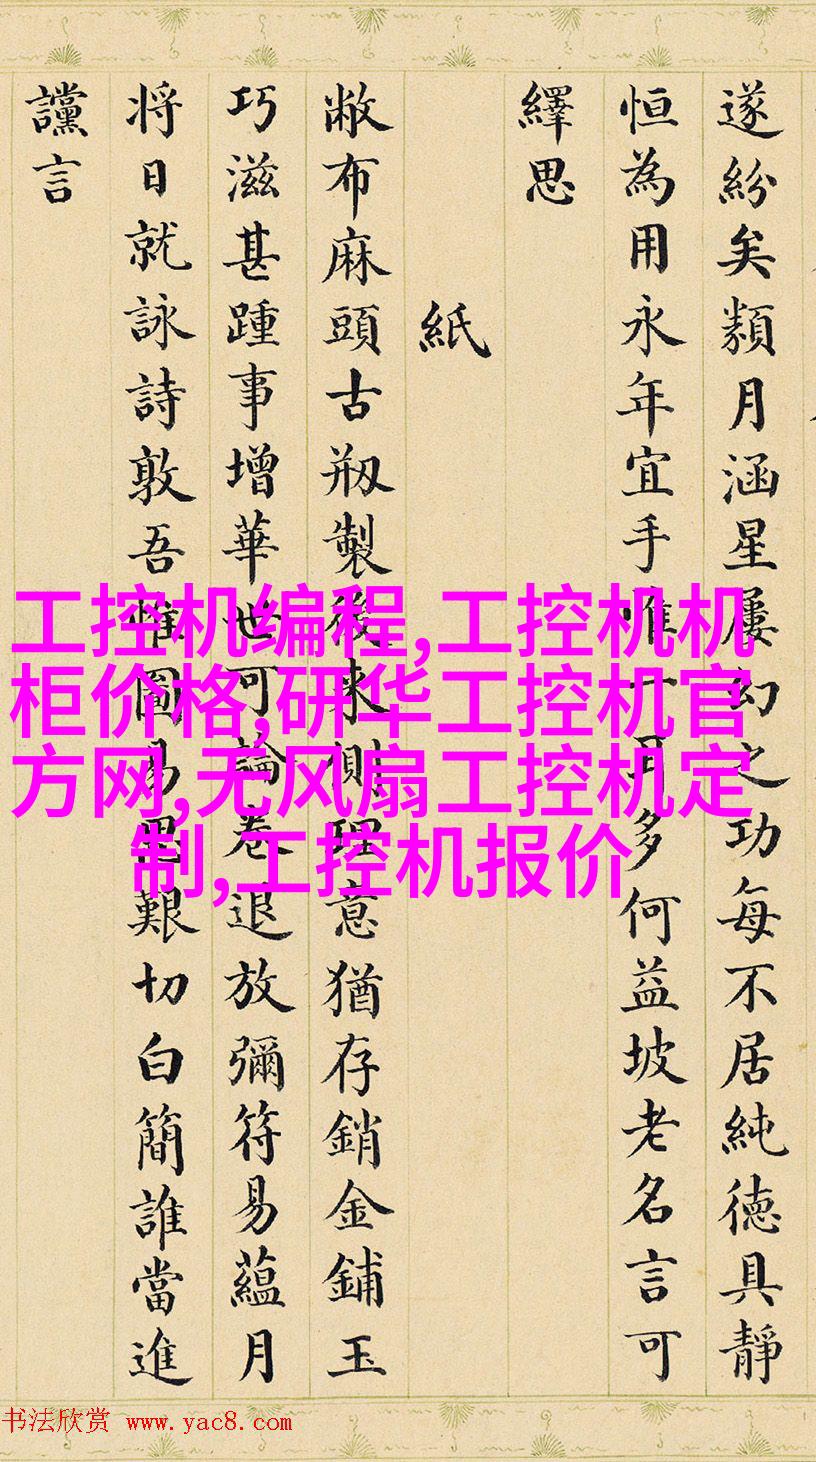 遂紛矣類月涵星屢幻之功每不居純德具靜
恒為用永年宜手唯一耳多何益坡老名言可
繹思
紙
敝布麻頭古剙製後来側理意猶存銷金鋪玉
巧滋甚踵事增華世可論卷退放彌符易蘊月
将日就詠詩敦吾惟圖易思艱切白簡誰當進
讜言
工控机编程,工控机机
柜价格,研华工控机官
方网,无风扇工控机定
制,工控机报价
书法欣赏 www.yac8.com